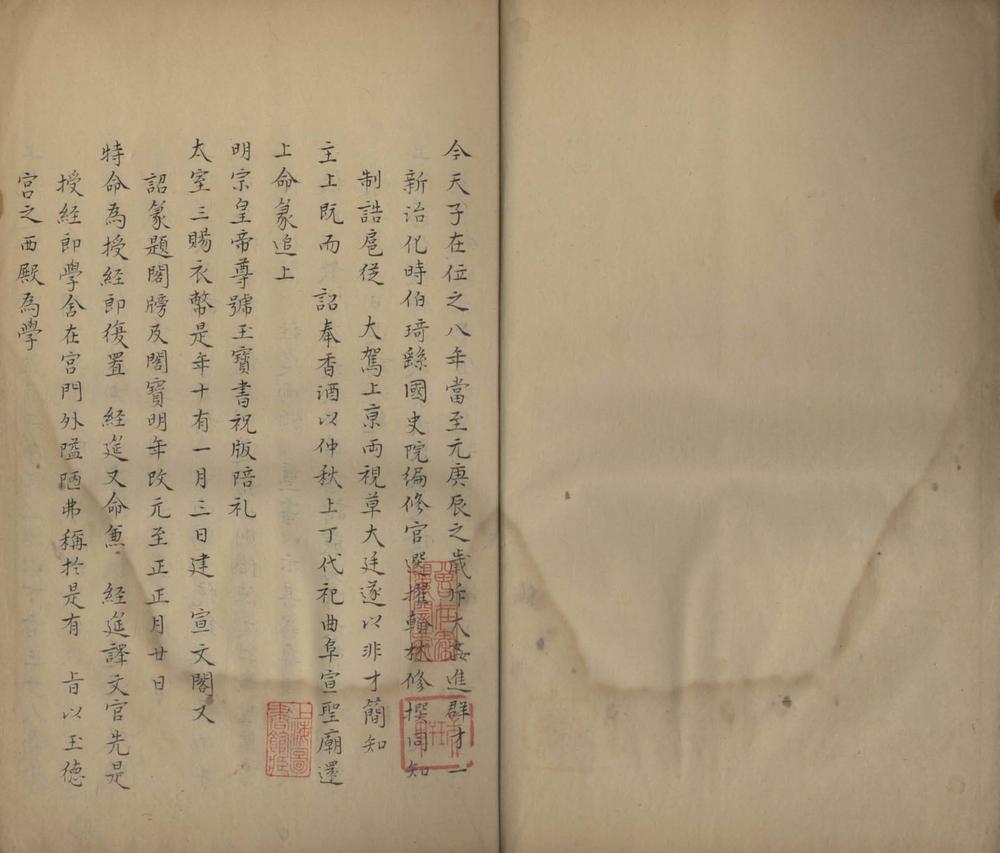 今天子在位之八年當至元庚辰之歲斥大姦進群才一
新治化時伯琦繇國史院編修官選擢翰林修撰同知
制誥扈從　大駕上京両視草大廷遂以非才簡知
主上既而　詔奉香酒以仲秋上丁代祀曲阜宣聖廟還
上命篆追上
明宗皇帝尊號玉寶書祝版陪礼
太室三賜衣幣是年十有一月三日建　宣文閣又
詔篆題閣牓及閣寶明年改元至正正月廿日
特命為授經郎復置　經筵又命兼　經筵譯文官先是
授經郎學舍在宮門外隘陋弗稱於是有　旨以玉德
宮之西殿為學
上海圖書館藏